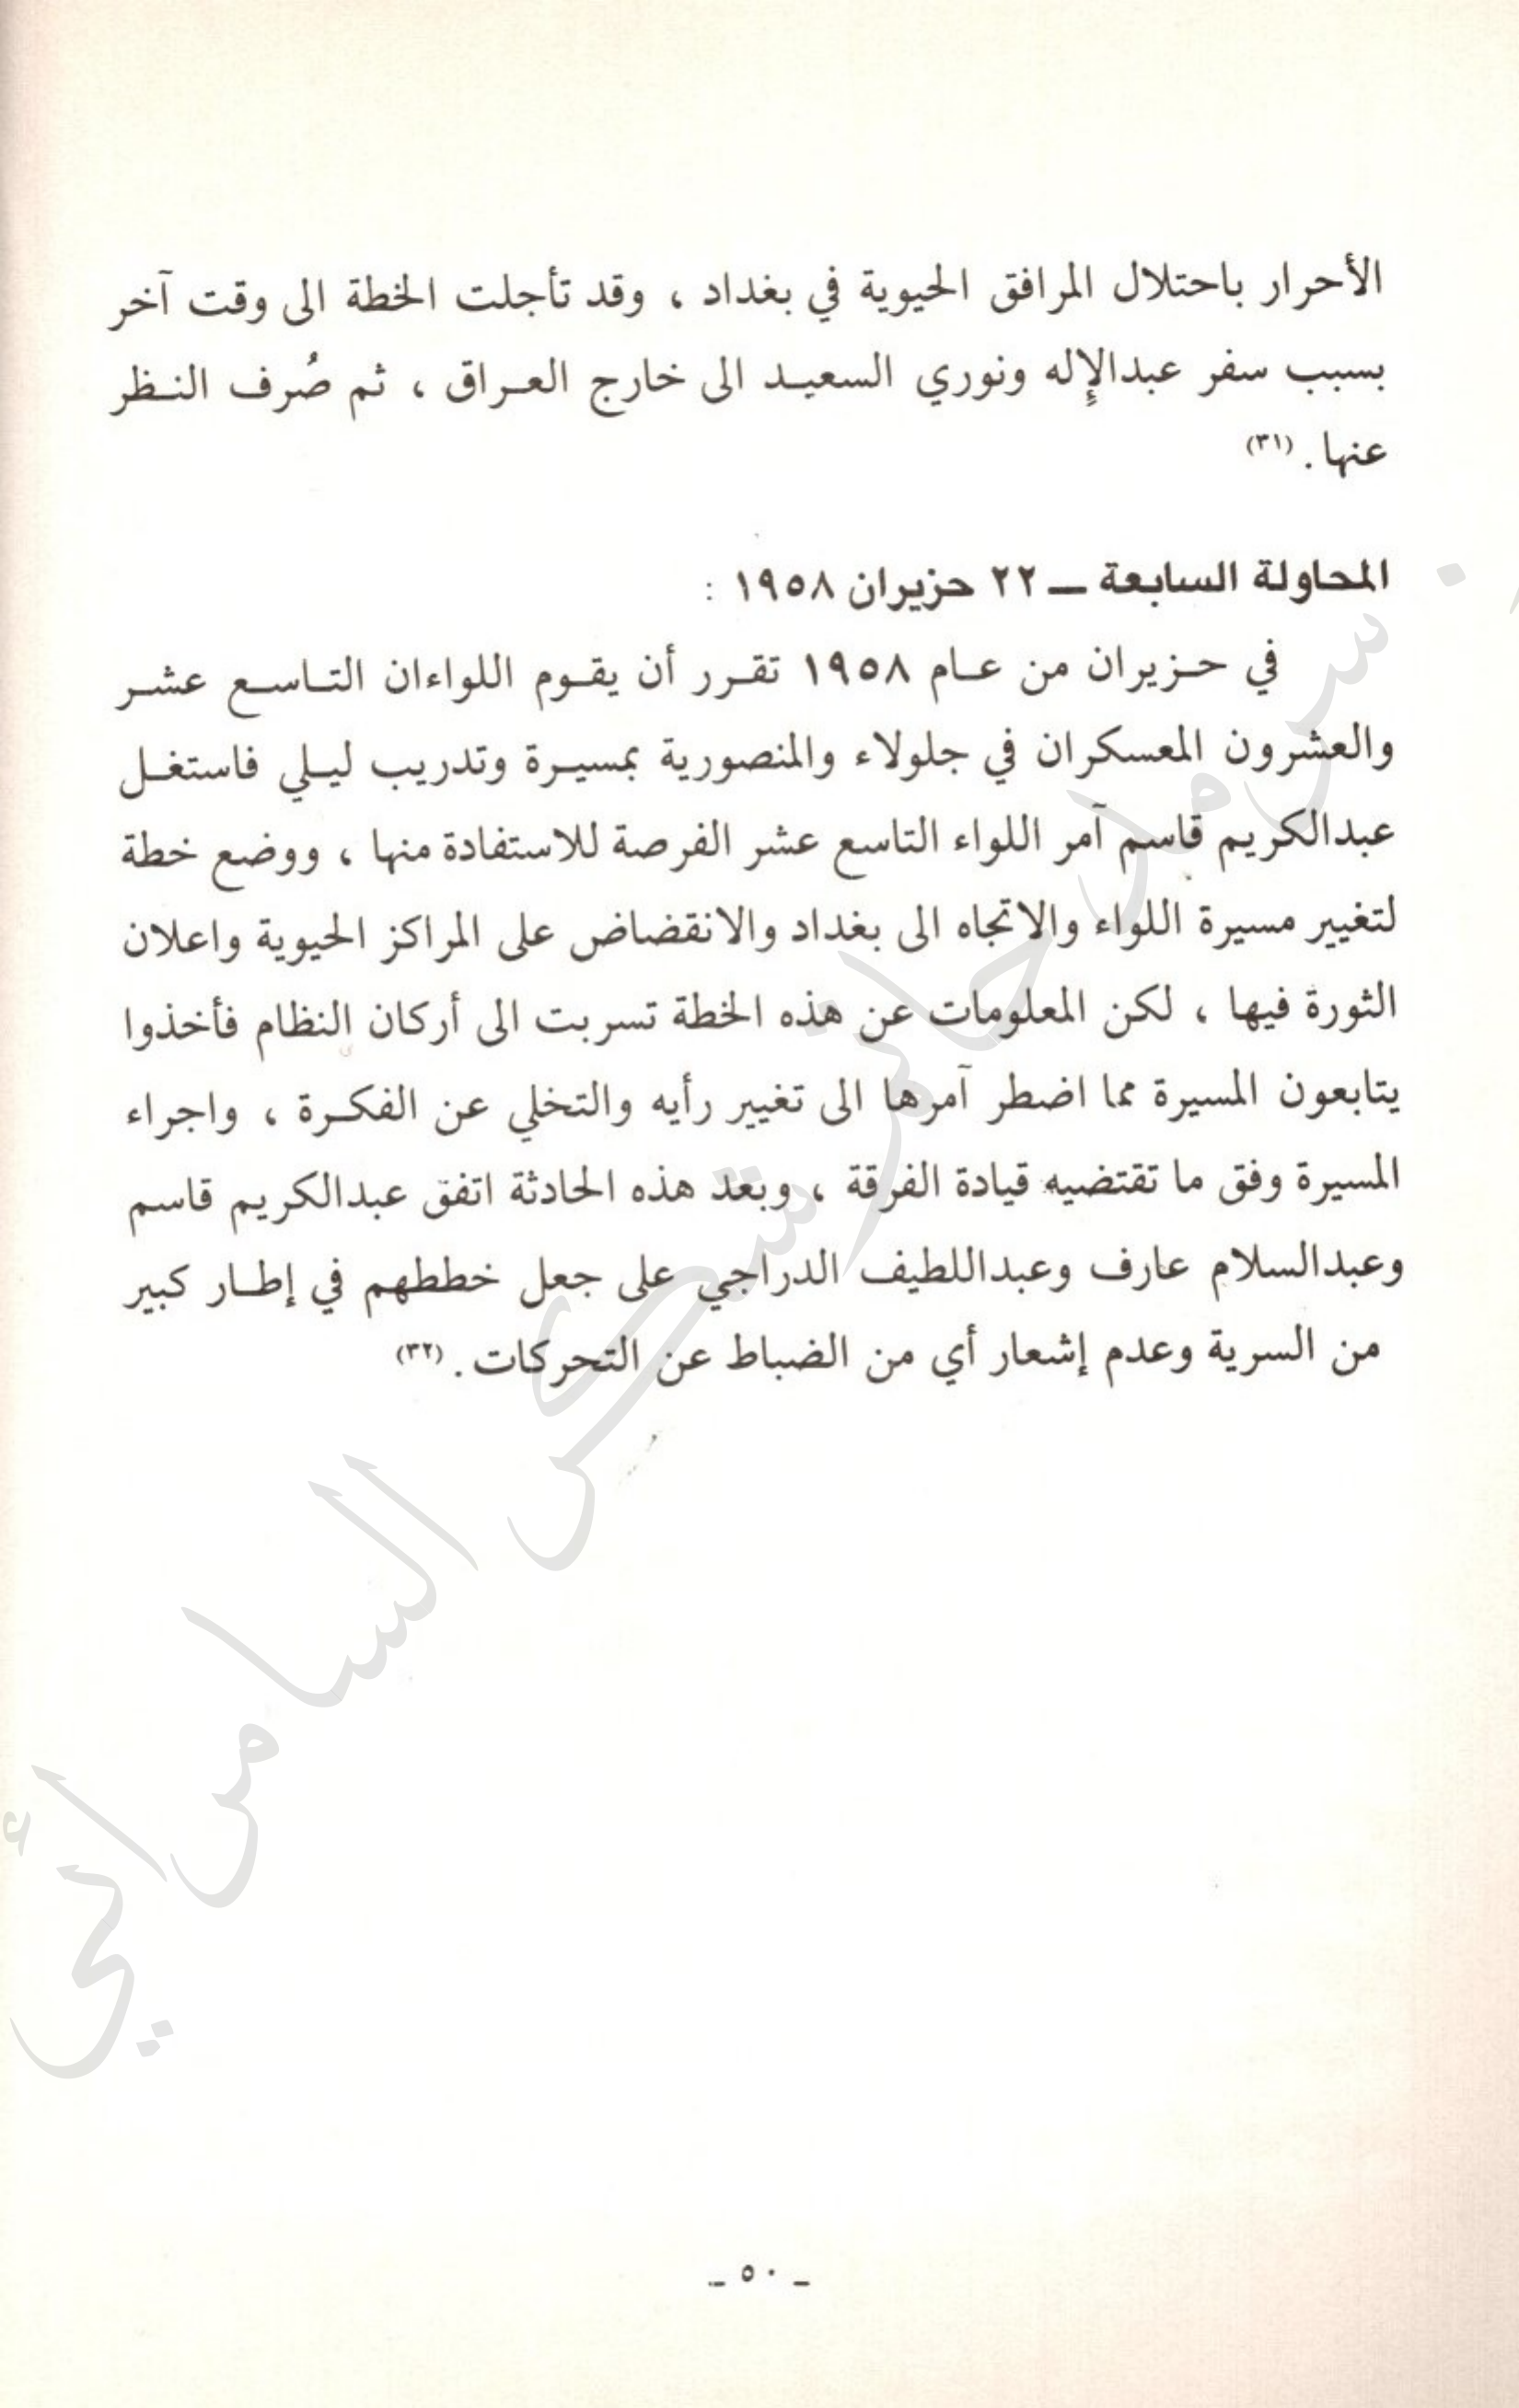 الأحرار باحتلال المرافق الحيوية في بغداد ، وقد تأجلت الخطة الى وقت آخر
بسبب سفر عبدالإله ونوري السعيد الى خارج العراق ، ثم صُرف النظر
عنها . (٣١)
المحاولة السابعة ــ ٢٢ حزيران ١٩٥٨ :
في حزيران من عام ١٩٥٨ تقرر أن يقوم اللواءان التاسع عشر
والعشرون المعسكران في جلولاء والمنصورية بمسيرة وتدريب ليلي فاستغل
عبدالكريم قاسم آمر اللواء التاسع عشر الفرصة للاستفادة منها ، ووضع خطة
لتغيير مسيرة اللواء والاتجاه الى بغداد والانقضاض على المراكز الحيوية واعلان
الثورة فيها ، لكن المعلومات عن هذه الخطة تسربت الى أركان النظام فأخذوا
يتابعون المسيرة مما اضطر آمرها الى تغيير رأيه والتخلي عن الفكرة ، واجراء
المسيرة وفق ما تقتضيه قيادة الفرقة ، وبعد هذه الحادثة اتفق عبدالكريم قاسم
وعبدالسلام عارف وعبداللطيف الدراجي على جعل خططهم في إطار كبير
من السرية وعدم إشعار أي من الضباط عن التحركات . (٣٢)
سرمد حاتم شكر السامرائي
ـ ٥٠ ـ